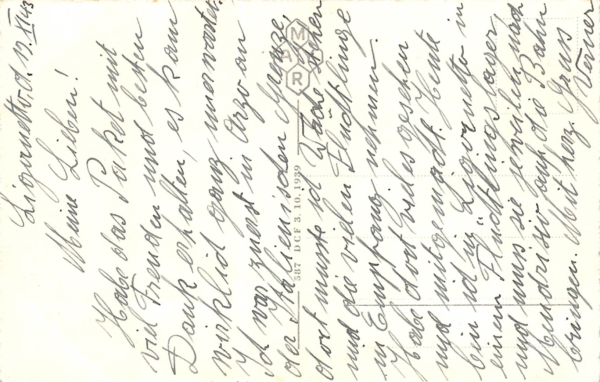 Ligornetto, d. 19. XI 43
Meine Lieben!
Habe das Paket mit
viel Freuden und besten
Dank erhalten, es kam
wirklich ganz unerwartet.
Ich war zuerst in Arzo an
der Italienischen Grenze,
dort musste ich Wache stehen
und die vielen Flüchtlinge
in Empfang nehmen.
Habe dort vieles gesehen
und mitgemacht. Heute
bin ich in Ligornetto in
einem "Flüchtlingslager
und muss sie jeweilen nach
Mendrisio auf die Bahn
bringen. Mit herz. Gruss
MAR
587 DCF 3. 10. 1939